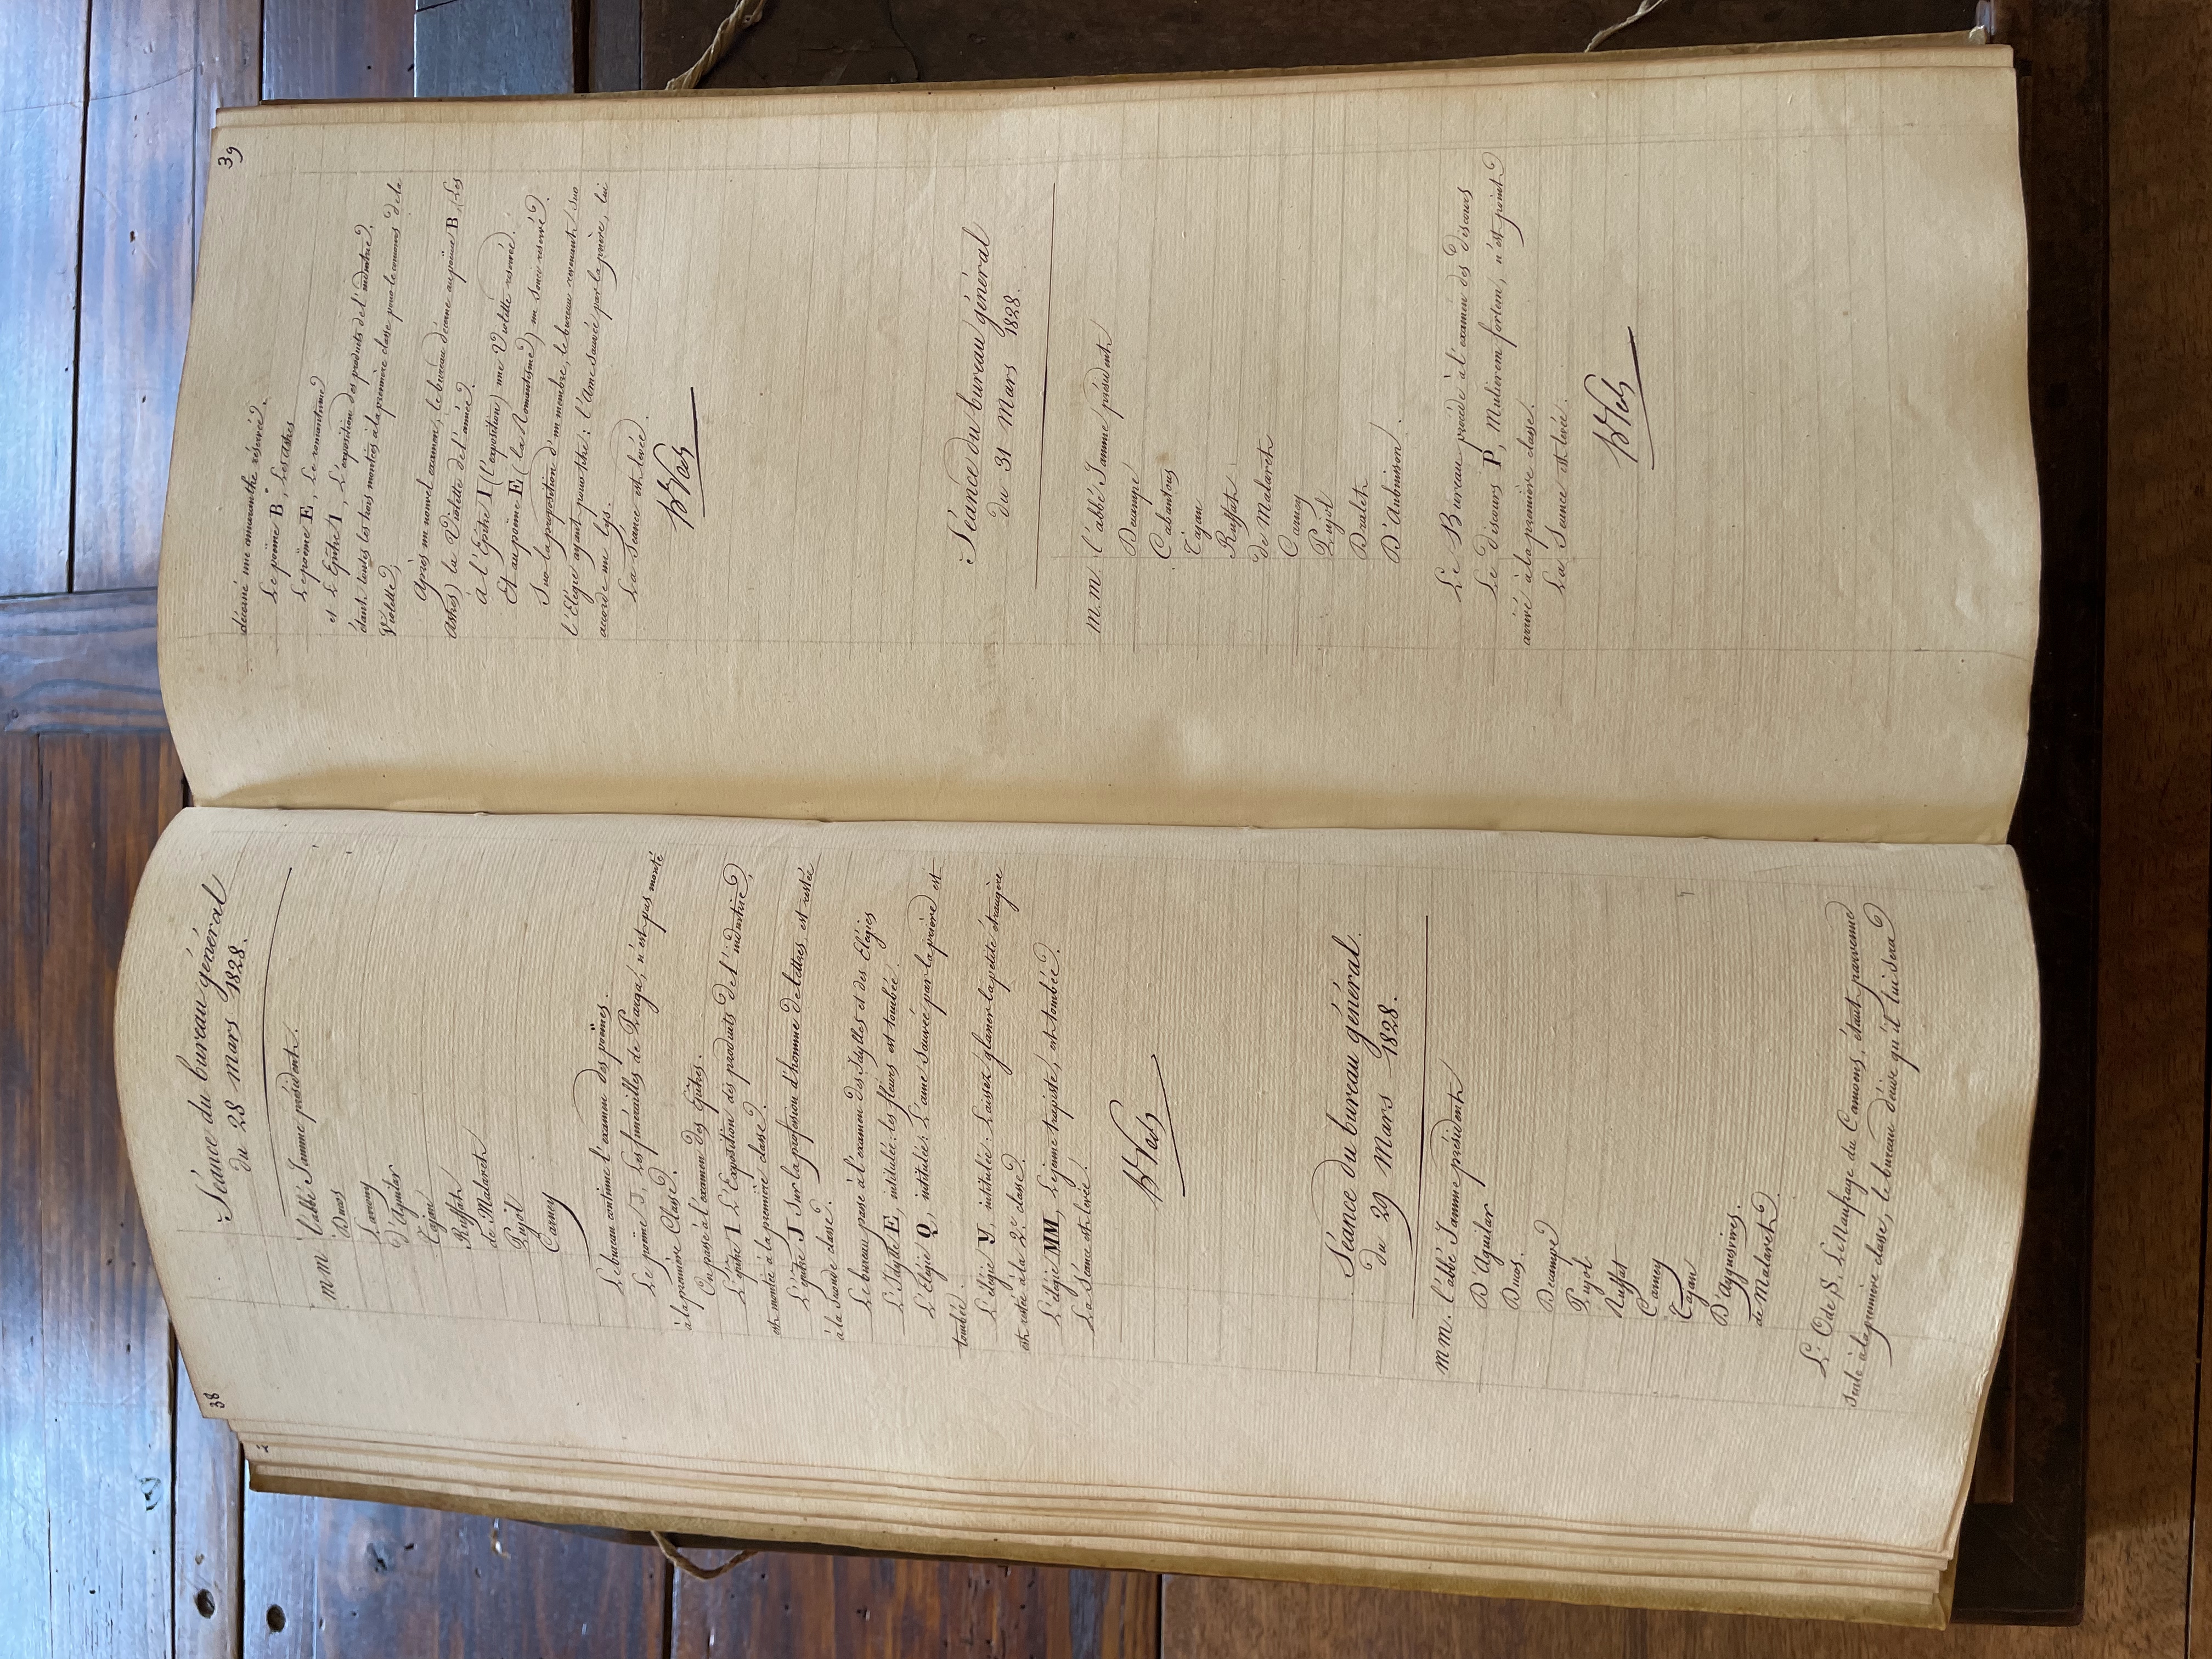 38
Séance du bureau général
du 28 mars 1828.
mm l'abbé Jamme président.
Ducos
Lavony
D'Aguilar
Tajan
Ruffat
de Malaret
Pujol
Carney
Le bureau continue l'examen des poëmes.
Le poëme J, Les funérailles de Parga, n'est pas monté
à la première Classe.
On passe à l'examen des Epitres.
L'Epitre I L'Exposition des produits de l'industrie,
est montée à la première classe.
L'épitre J Sur la profession d'homme de lettres est restée
à la Seconde classe.
Le bureau passe à l'examen des Idylles et des Elégies
L'Idylle E, intitulée: les fleurs est tombée.
L'Elégie Q, intitulée: L'ame Sauvée par la prière est
tombée.
L'élégie Y, intitulée: Laissez glaner la petite étrangère
est restée à la 2e classe.
L'élégie MM, Le jeune trapiste, est tombée.
La Séance est levée.
Séance du bureau général.
du 29 mars 1828.
mm. l'abbé Jamme président
D'Aguilar
Ducos.
Decampe
Pujol
Ruffat
Carney
Tajan
D'Ayguesvives.
de Malaret.
L'Ode S, Le Naufrage du Camoens, étant parvenue
seule à la première classe, le bureau décide qu'il lui sera
39
décerné une amaranthe réservée.
Le poëme B, Les astres
Le poëme E, Le romantisme
et L'Epitre I, L'exposition des produits de l'industrie.
étant toutes les trois montées à la première classe pour le concours de la
Violette,
Après un nouvel examen, le bureau décerne au poëme B, (Les
Astres) la Violette de l'année.
à l'Epitre I (l'exposition) une Violette réservée.
Et au poëme E (la Romantisme) un Souci réservé.
Sur la proposition d'un membre, le bureau revenant sur
l'Elégie ayant pour titre: l'Ame sauvée par la prière, lui
accorde un Lys.
La Séance est levée.
Séance du bureau général
du 31 Mars 1828.
m.m. l'abbé Jamme président
Decampe
Cabantous
Tajan
Ruffat
de Malaret
Carney
Pujol
Dralet
D'Aubuisson.
Le Bureau procède à l'examen des discours
Le discours P, Mulierem fortem, n'est point
arrivé à la première classe.
La Séance est levée.